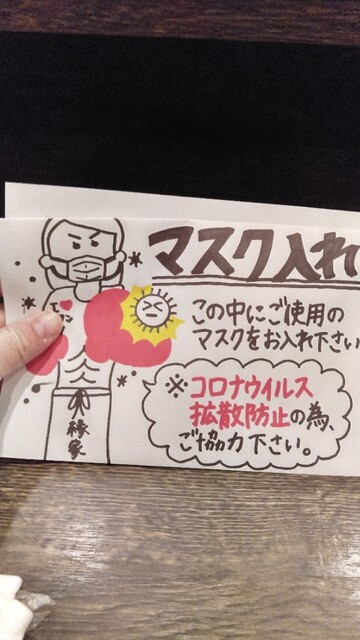 マスク入れ
この中にご使用の
マスクをお入れ下さい
※コロナウイルス
拡散防止の為、
ご協力下さい。